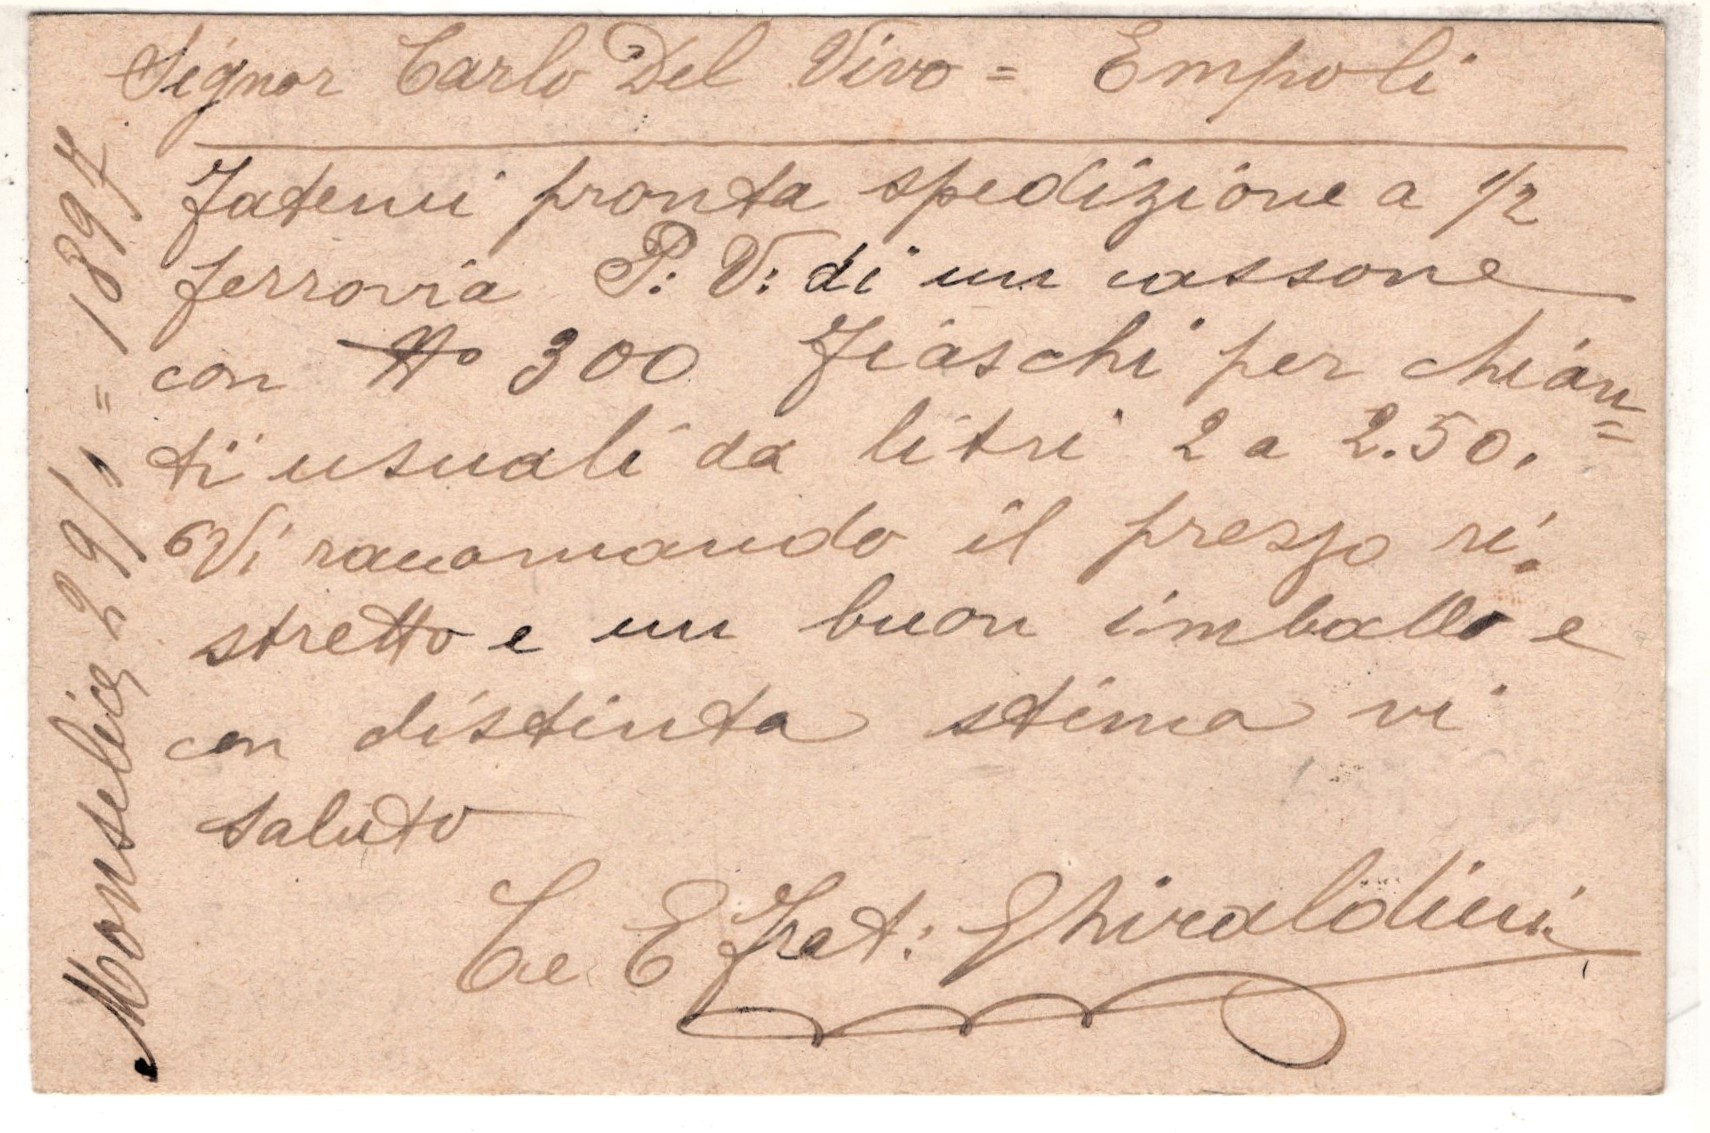 Signor Carlo Del Vivo = Empoli
Fatemi pronta spedizione a 1/2
ferrovia P: V: di un cassone
con No 300 Fiaschi per chian=
ti usuali da litri 2 a 2.50.
Vi racomando il prezzo ri.
stretto e un buon imballo e
con distinta stima vi
saluto
C e E Frat: Ghiraldini
Monselice 29/1 = 1897